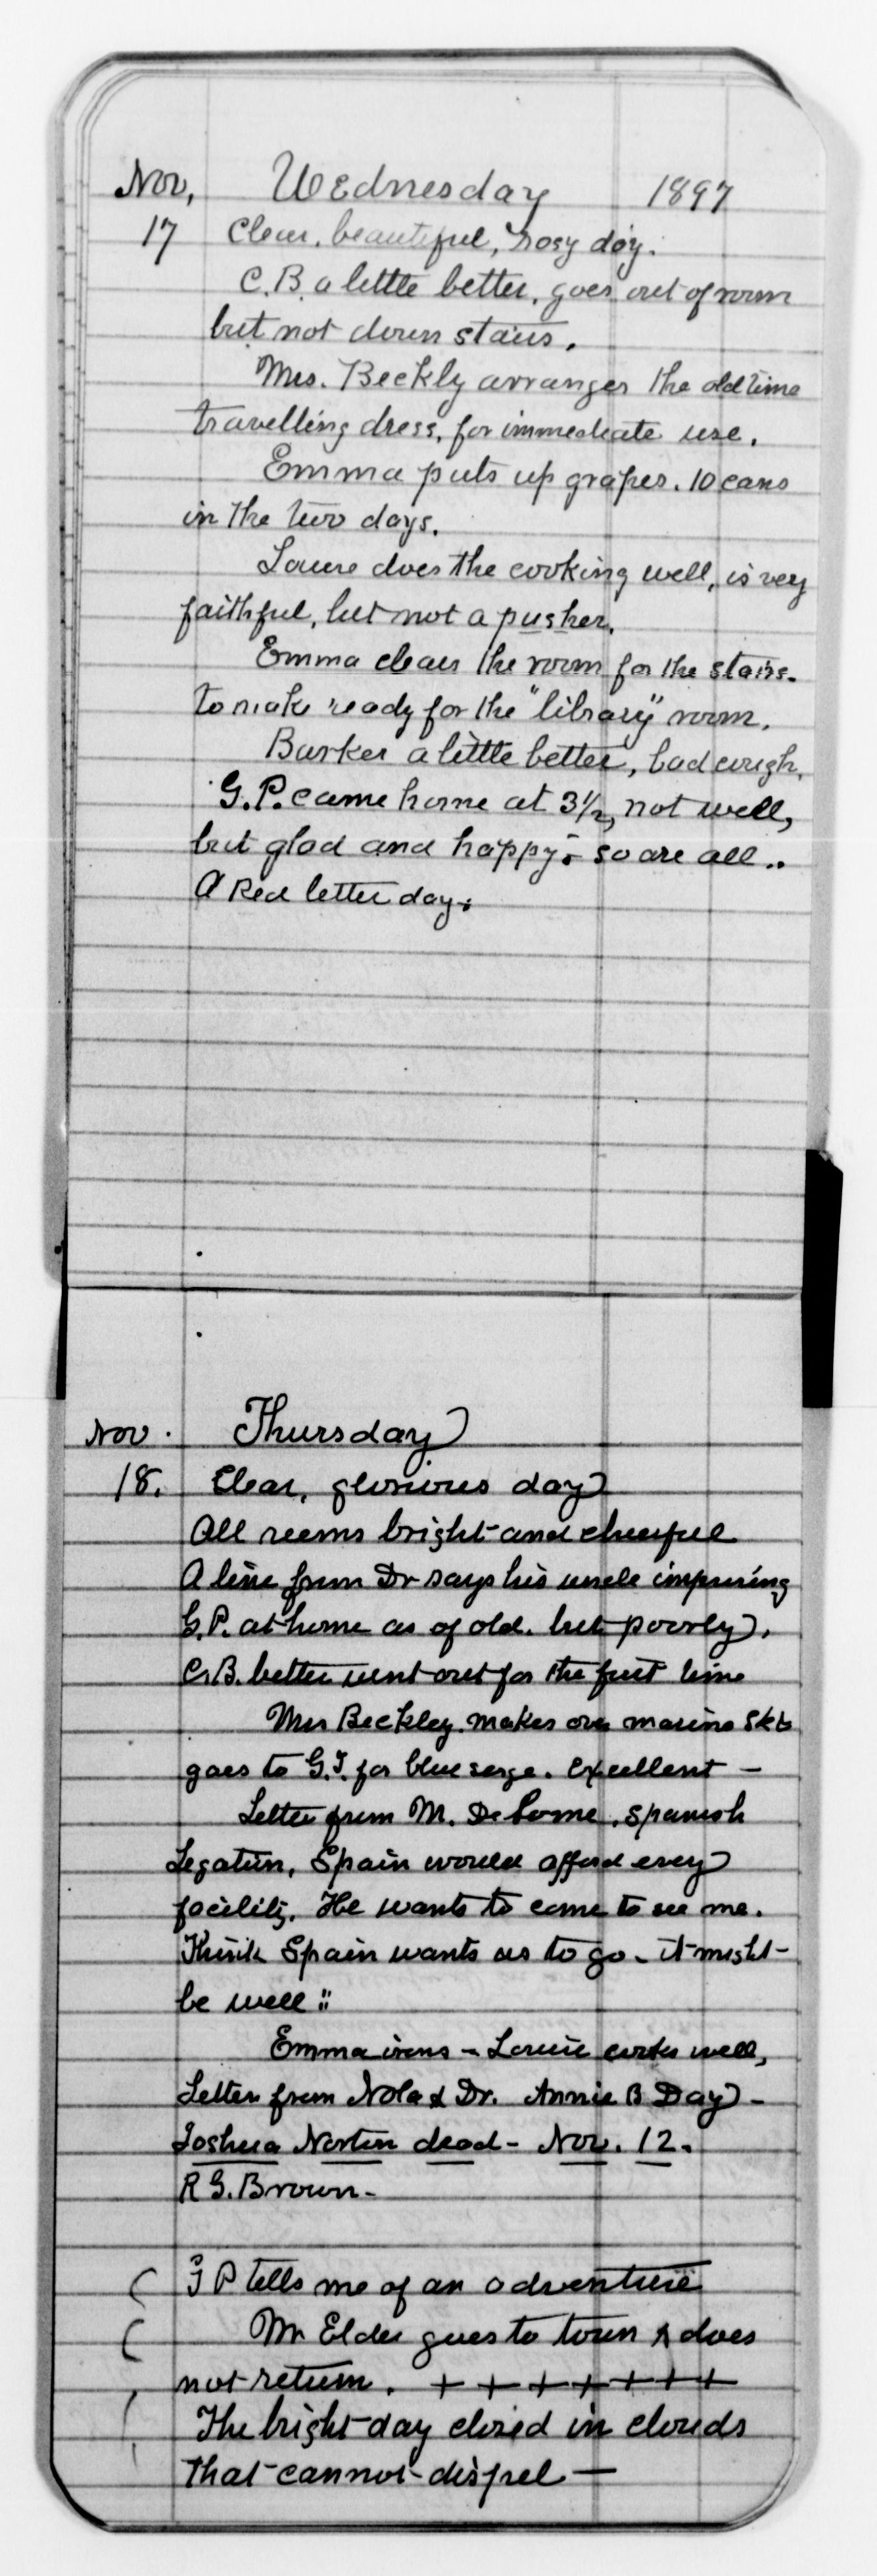 Nov, Wednesday 1897
17 Clear, beautiful, rosy day.
C.B. a little better, goes out of room
but not down stairs.
Mrs. Beckly arranges the old time
travelling dress, for immediate use.
Emma puts up grapes. 10 cans
in the two days.
Louise does the cooking well, is very
faithful, but not a pusher.
Emma clears the room for the stairs.
to make ready for the "library" room.
Barker a little better, bad cough.
G.P. came home at 3½, not well,
but glad and happy; so are all..
A Red letter day.
Nov. Thursday
18. Clear, glorious day
All seems bright and cheerful
A line from Dr says his uncle improving
G.P. at home as of old. but poorly.
C.B. better went out for the first time
Mrs Beckley. makes over marine Skt
goes to G.I. for blue serge. Excellent —
Letter from M. De Lome, Spanish
Legation, Spain would afford every
facility. He wants to come to see me.
Think Spain wants us to go - it might -
be well
Emma irons - Louise cooks well,
Letter from Nola & Dr. Annie B Day -
Joshua Norton dead - Nov. 12.
R G. Brown -
G P tells me of an adventure
Mr Elder goes to town & does
not return. + + + + + + +
The bright day closed in clouds
that cannot dispel —